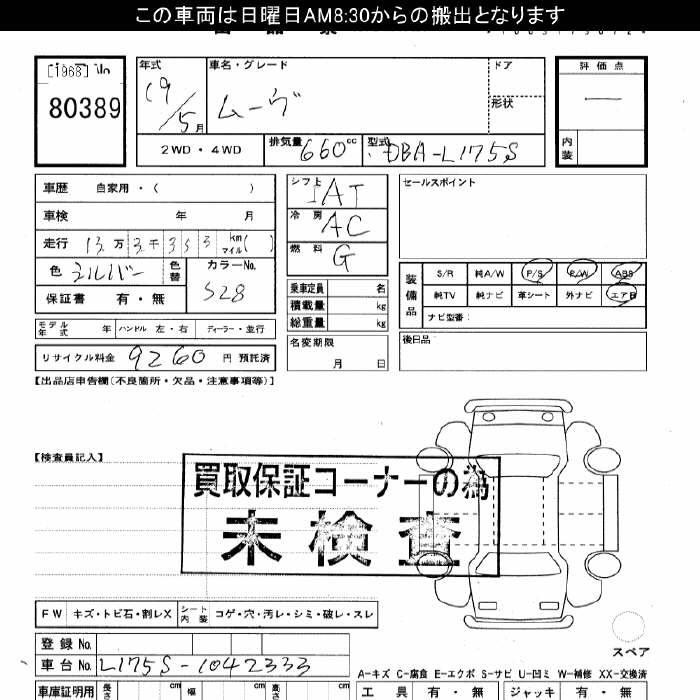 この車両は日曜日AM8:30からの搬出となります
[1968]
80389
年式 19/5月
車名・グレード ムーヴ
ドア
形状
評価点 —
内装
2WD・4WD
排気量 660cc
型式 DBA-L175S
車歴 自家用・( )
車検 年 月
走行 13万3千353 km マイル( )
色 シルバー 色替
カラーNo. S28
保証書 有・無
シフト IAT
冷房 AC
燃料 G
セールスポイント
乗車定員 名
積載量 kg
総重量 kg
装備品
S/R 純A/W P/S P/W ABS
純TV 純ナビ 革シート 外ナビ エアB
ナビ型番:
モデル年式 年 ハンドル 左・右 ディーラー・並行
名変期限 月 日
後日品
リサイクル料金 9260 円 預託済
【出品店申告欄(不良箇所・欠品・注意事項等)】
【検査員記入】
買取保証コーナーの為
未検査
FW キズ・トビ石・割レX シート内装 コゲ・穴・汚レ・シミ・破レ・スレ
スペア
登録No.
車台No. L175S-1042333
A-キズ C-腐食 E-エクボ S-サビ U-凹ミ W-補修 XX-交換済
車庫証明用 長さ cm 幅 cm 高さ cm
工具 有・無 ジャッキ 有・無